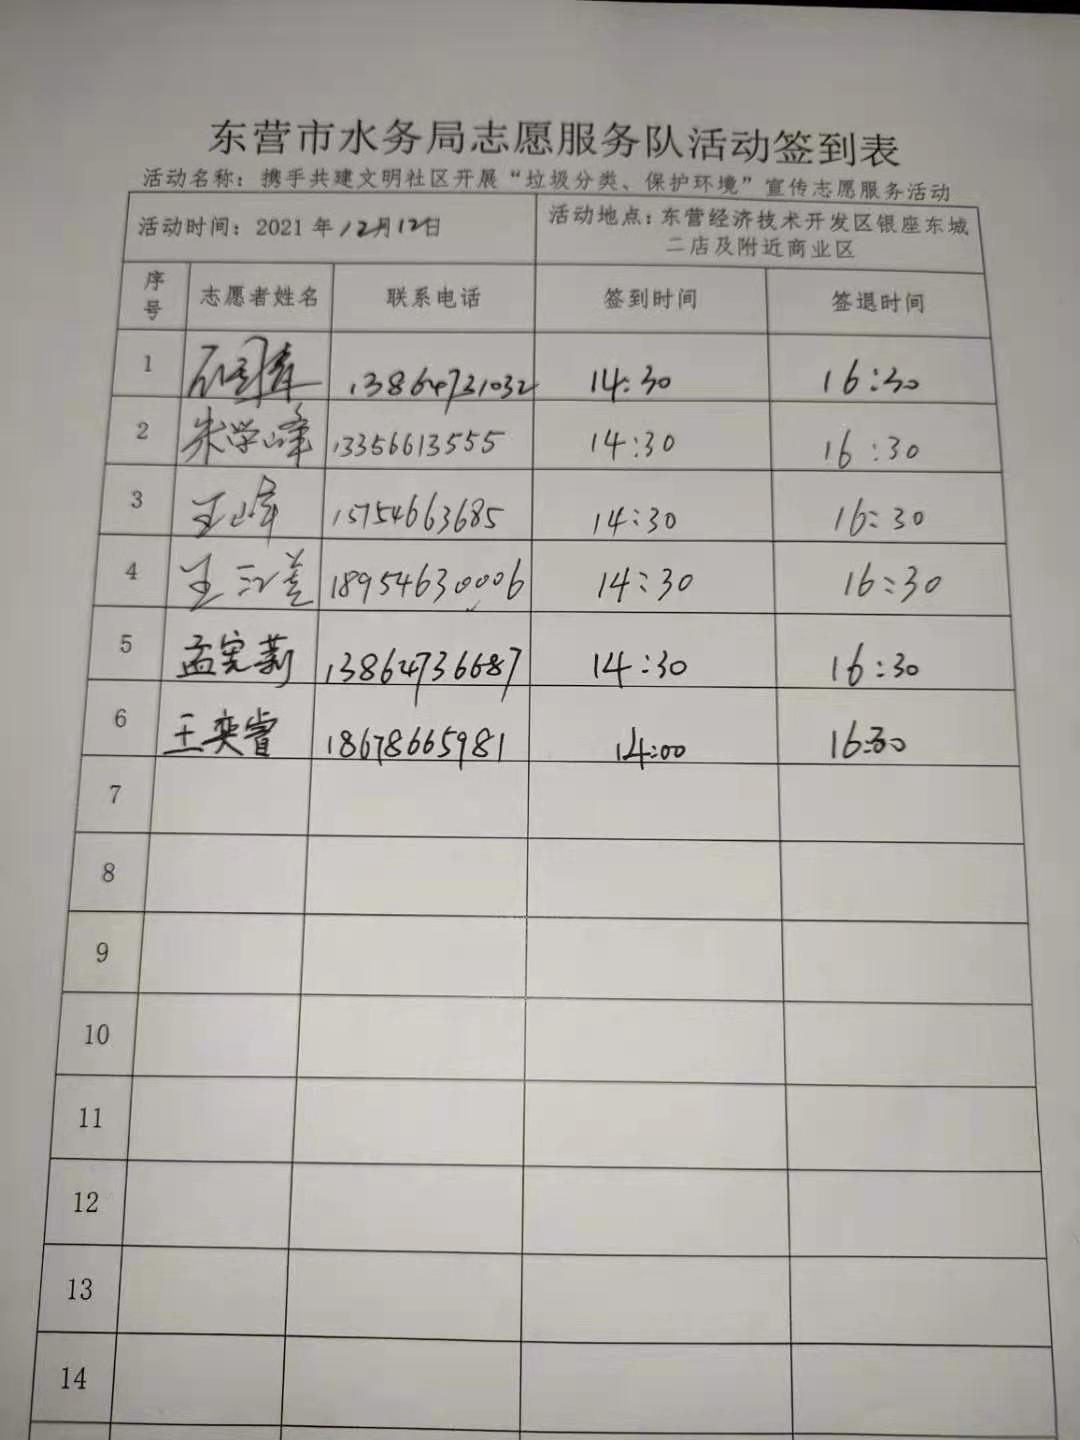 东营市水务局志愿服务队活动签到表
活动名称：携手共建文明社区开展“垃圾分类、保护环境”宣传志愿服务活动
活动时间：2021年12月12日 活动地点：东营经济技术开发区银座东城
二店及附近商业区
序号 志愿者姓名 联系电话 签到时间 签退时间
1 13864731032 14:30 16:30
2 朱学峰 13356613555 14:30 16:30
3 王峰 15754663685 14:30 16:30
4 王 18954630006 14:30 16:30
5 孟宪莉 13864736687 14:30 16:30
6 王奕睿 18678665981 14:00 16:30
7
8
9
10
11
12
13
14